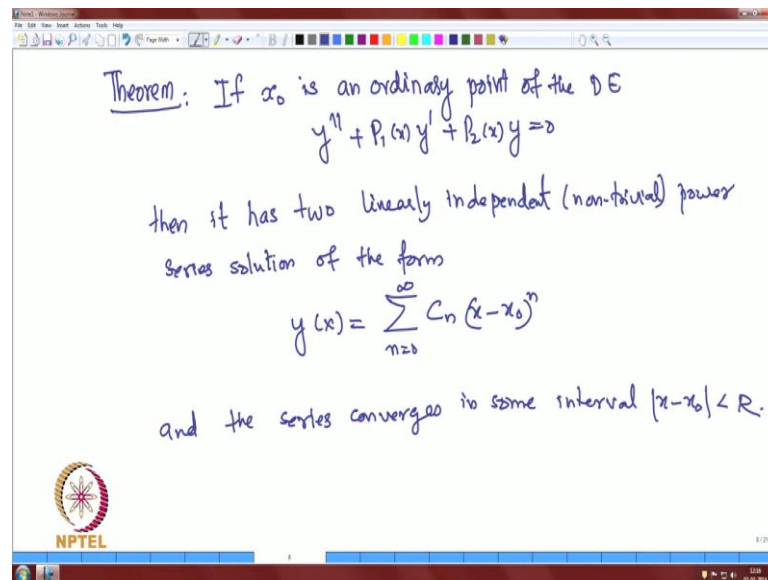 Note1 - Windows Journal
File Edit View Insert Actions Tools Help
Theorem: If x₀ is an ordinary point of the DE
y'' + P₁(x) y' + P₂(x) y = 0
then it has two linearly independent (non-trivial) power
series solution of the form
y(x) = ∑_{n=0}^{∞} Cₙ (x-x₀)ⁿ
and the series converges in some interval |x-x₀| < R.
NPTEL